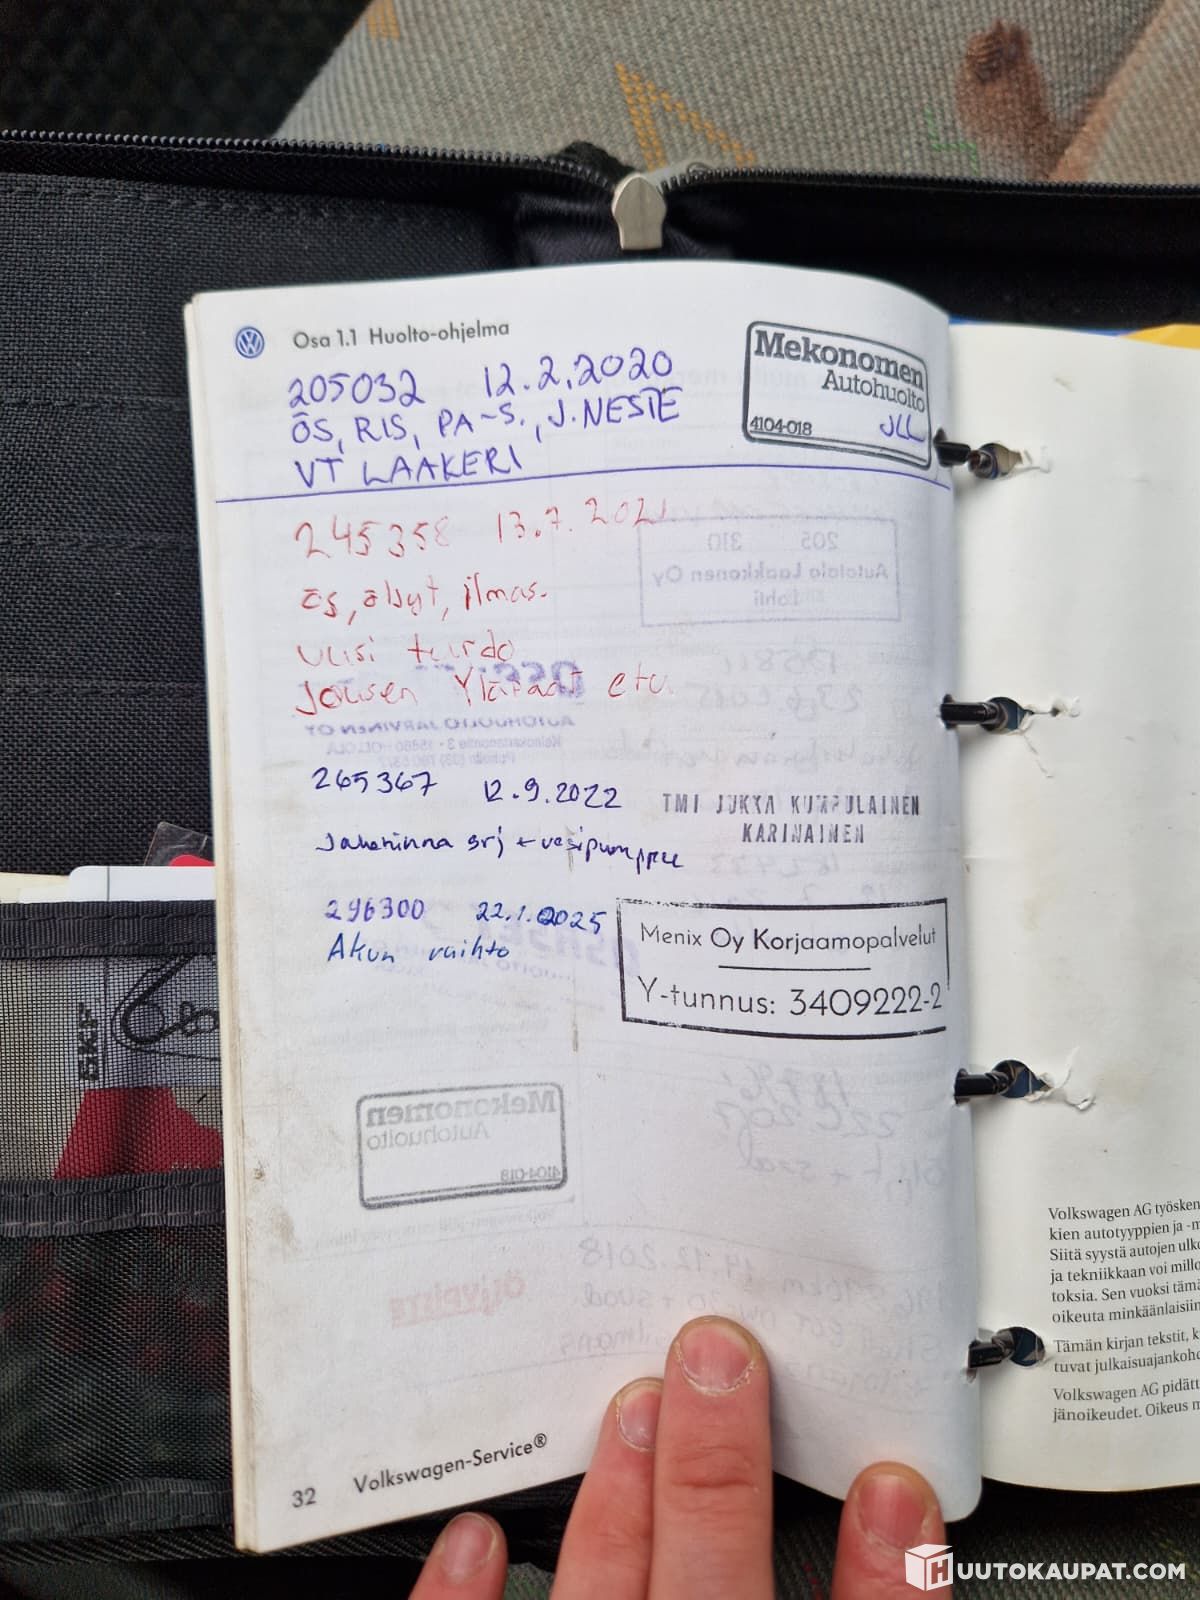 Osa 1.1 Huolto-ohjelma
205032 12.2.2020
ÖS, RIS, PA-S., J.NESTE
VT LAAKERI
Mekonomen
Autohuolto
4104-018 JLL
245358 13.7.2021
ös, öljyt, ilmas.
uusi turbo
Jousen Yläpäät etu
265367 12.9.2022
Jakohihna srj + vesipumppu
TMI JUKKA KUMPULAINEN
KARINAINEN
296300 22.1.2025
Akun vaihto
Menix Oy Korjaamopalvelut
Y-tunnus: 3409222-2
32 Volkswagen-Service®
Volkswagen AG työsken
kien autotyyppien ja -m
Siitä syystä autojen ulko
ja tekniikkaan voi millo
toksia. Sen vuoksi tämä
oikeuta minkäänlaisiin
Tämän kirjan tekstit, k
tuvat julkaisuajankoho
Volkswagen AG pidätt
jänoikeudet. Oikeus m
SKF
HUUTOKAUPAT.COM